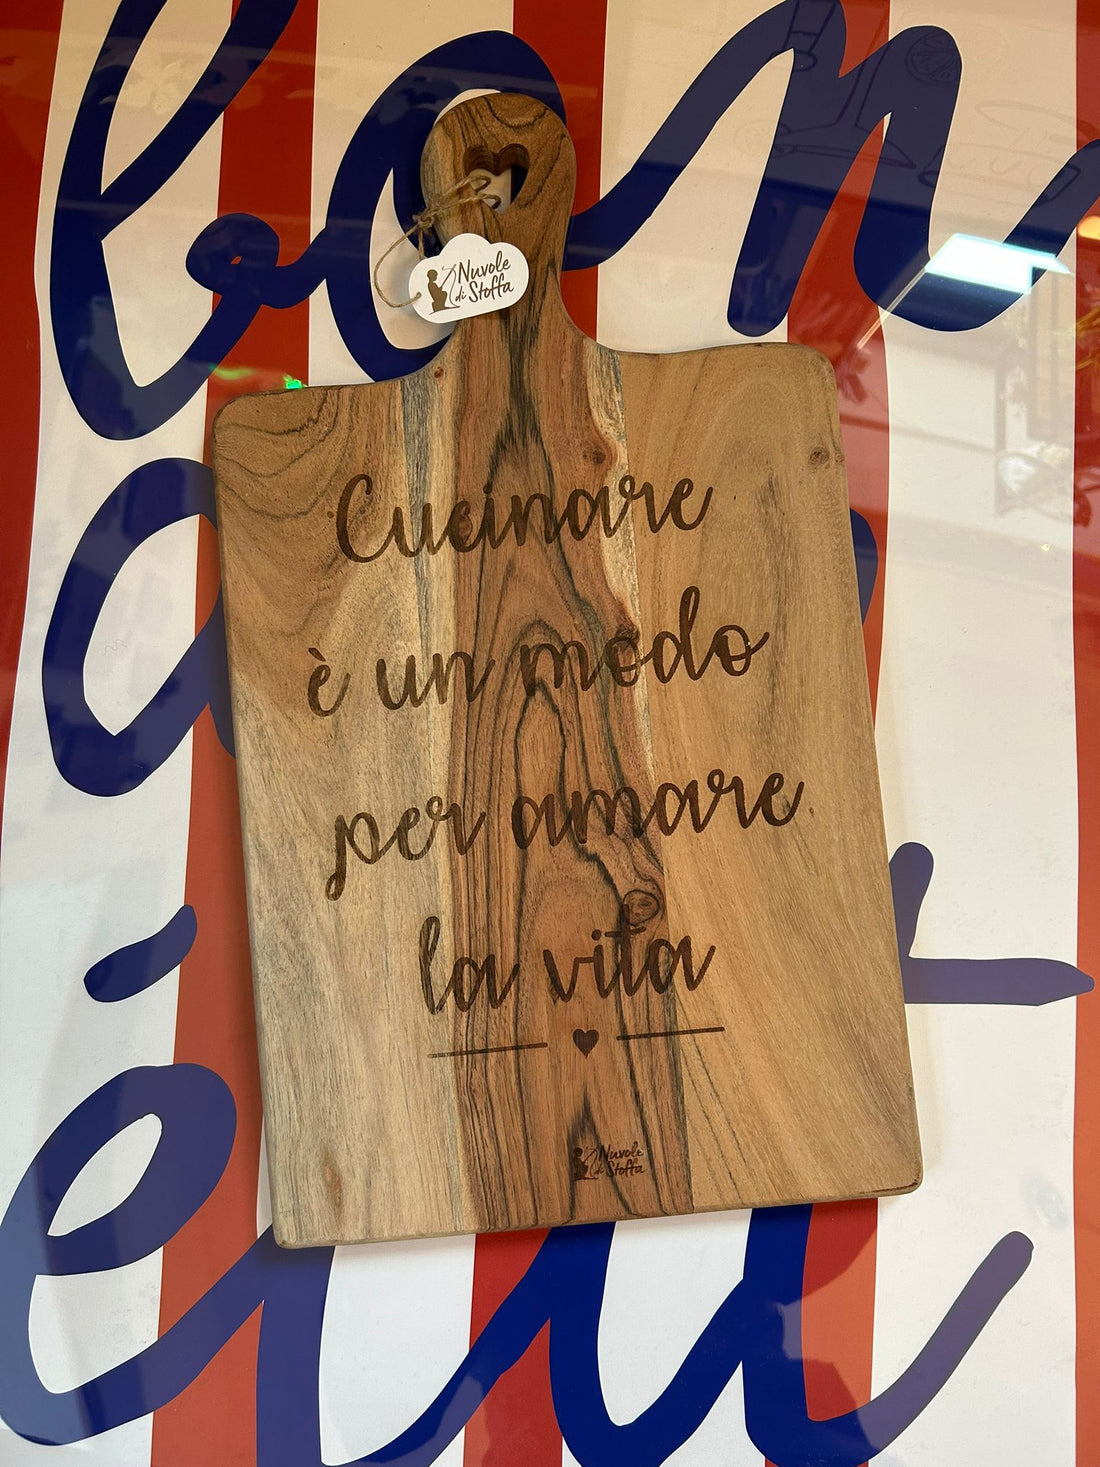 bon
Nuvole
di Stoffa
Cucinare
è un modo
per amare
la vita
Nuvole
di Stoffa